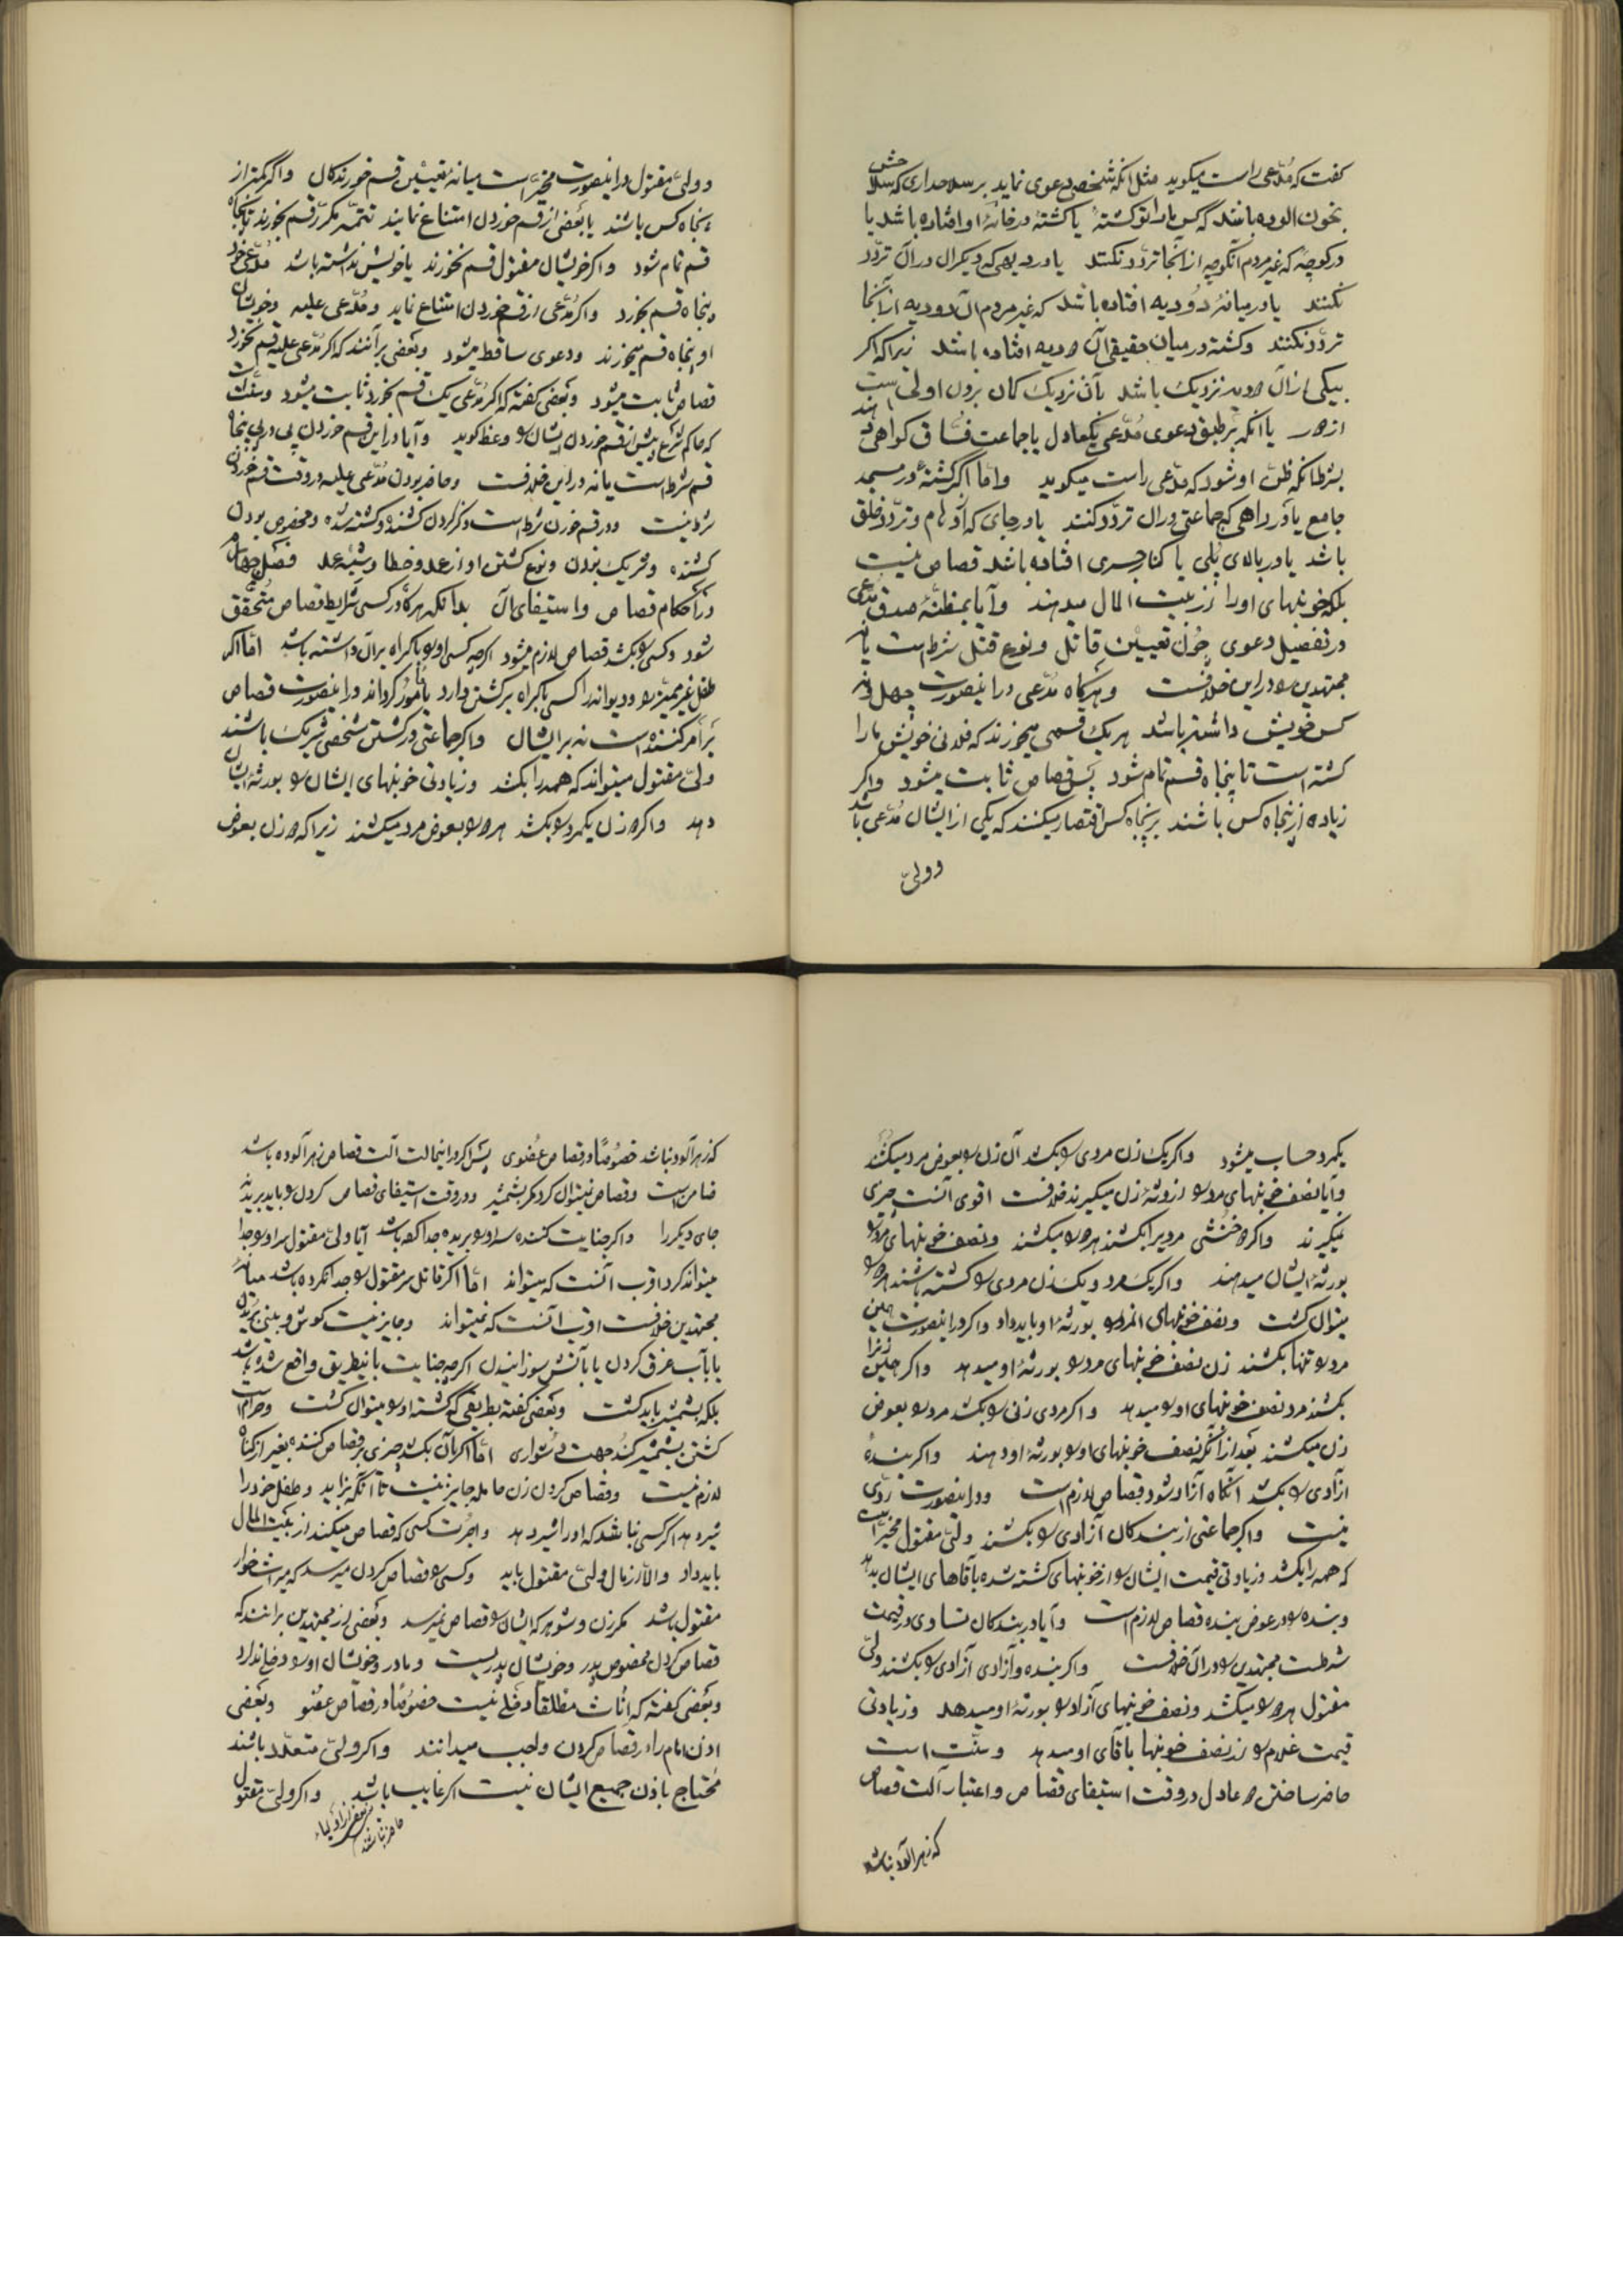 گفت که مُدّعی راست میکوید مثل انکه شخصی دعوی نماید بر سلاحداری که سلاحش
بخون الوده باشد که کس مارا تو کشتهٔ یا کشتهٔ در خانهٔ او افتاده باشد یا
در کوچهٔ که غیر مردم آنکوچه از آنجا تردّد نکنند یا در دیهی که دیکران در آن تردّد
نکنند یا در میانهٔ دو دیه افتاده باشد که غیر مردم آن دو دیه از آنجا
تردّد نکنند و کشته در میان حقیقی آن دو دیه افتاده باشد زیرا که اکر
بیکی از آن دو دیه نزدیک باشد بآن نزدیک کمان بردن اولی است
از دور یا انکه بر طبق دعوی مُدّعی یکعادل یا جماعت فسّاق کواهی دهند
بشرطانکه ظن او شود که مدّعی راست میکوید و امّا اکر کشتهٔ در مسجد
جامع یا در راهی که جماعتی در ان تردّد کنند یا در جای که ازدحام و تردّد خلق
باشد یا در بالای پُلی یا کنار جسری افتاده باشد قصاص نیست
بلکه خونبهای او را از بیت المال میدهند و آیا بمظنّهٔ صدق مُدّعی
در تفصیل دعوی چون تعیین قاتل و نوع قتل شرط است یا نه
مجتهدین را در این خلافست و هرکاه مُدّعی در اینصورت چهل و نه
کس خویش داشته باشد هر یک قسمی میخورند که فلانی خویش ما را
کشته است تا پنجاه قسم تمام شود پس قصاص ثابت میشود و اکر
زیاده از پنجاه کس باشند بر پنجاه کس اقتصار میکنند که یکی از ایشان مُدّعی باشد
و ولیّ
و ولیّ مقتول در اینصورت مخیّر است میانهٔ تعیین قسم خورندکان و اکر کمتر از
پنجاه کس باشند یا بعضی از قسم خوردن امتناع نمایند تتمّه مکرّر قسم بخورند تا پنجاه
قسم تمام شود و اکر خویشان مقتول قسم نخورند یا خویش نداشته باشد مُدّعی خود
پنجاه قسم بخورد و اکر مُدّعی از قسم خوردن امتناع نماید و مُدّعی علیه و خویشان
او پنجاه قسم میخورند و دعوی ساقط میشود و بعضی برآنند که اکر مُدّعی علیه قسم نخورد
قصاص ثابت میشود و بعضی کفته که اکر مُدّعی یک قسم بخورد ثابت میشود و سنّت است
که حاکم شرع پیش از قسم خوردن ایشان را وعظ کوید و آیا در این قسم خوردن پی در پی پنجاه
قسم شرط است یا نه در این خلافست و حاضر بودن مُدّعی علیه در وقت قسم خوردن
شرط نیست و در قسم خوردن شرط است ذکر کردن کشنده و کشته شده و مخصوص بودن
کشنده و شریک نبودن و نوع کشتن او از عمد و خطا و شبه عمد فصل چهارم
در احکام قصاص و استیفای آن بدانکه هرکاه در کسی شرایط قصاص مُتحقّق
شود و کسی را بکشد قصاص لازم میشود اکرچه کسی او را باکراه بر آن داشته باشد امّا اکر
طفل غیر ممیّز را و دیوانه را کسی باکراه بر کشتن دارد یا مأمور کرداند در اینصورت قصاص
بر امر کننده است نه بر ایشان و اکر جماعتی در کشتن شخصی شریک باشند
ولیّ مقتول میتواند که همه را بکشد و زیادتی خونبهای ایشان را بورثهٔ ایشان
دهد و اکر دو زن یکمرد را بکشد هر دو را بعوض مرد میکشند زیرا که دو زن بعوض
یکمرد حساب میشود و اکر یک زن مردی را بکشد آن زن را بعوض مرد میکشند
و آیا نصف خونبهای مرد را از ورثهٔ زن میکیرند خلافست اقوی آنست چیزی
نمیکیرند و اکر دو خنثی مردیرا بکشند هر دو را میکشند و نصف خونبهای مرد را
بورثهٔ ایشان میدهند و اکر یک مرد و یک زن مردی را کشته باشند هر دو را
میتوان کشت و نصف خونبهای انمرد را بورثهٔ او باید داد و اکر در اینصورت همین
مرد را تنها بکشند زن نصف خونبهای مرد را بورثهٔ او میدهد و اکر همین زنرا
بکشند مرد نصف خونبهای او را میدهد و اکر مردی زنی را بکشد مرد را بعوض
زن میکشند بعد از آنکه نصف خونبهای او را بورثهٔ او دهند و اکر بندهٔ
ازآدی را بکشد آنکاه آزاد شود قصاص لازم است و در اینصورت ردّی
نیست و اکر جماعتی از بندکان آزادی را بکشند ولیّ مقتول مخیّر است
که همه را بکشد و زیادتی قیمت ایشان را از خونبهای کشته شده بآقاهای ایشان بدهد
و بنده را در عوض بنده قصاص لازم است و آیا در بندکان تساوی در قیمت
شرطست مجتهدین را در آن خلافست و اکر بنده و آزادی آزادی را بکشند ولیّ
مقتول هر دو را میکشد و نصف خونبهای آزاد را بورثهٔ او میدهد و زیادتی
قیمت غلام را از نصف خونبها بآقای او میدهد و سنّت است
حاضر ساختن دو عادل در وقت استیفای قصاص و اعتبار آلت قصاص
که زهر آلود نباشد
که زهر آلود نباشد خصُوصًا در قصاص عُضوی پس اکر در اینحالت آلت قصاص زهر آلوده باشد
ضامن است و قصاص نمیتوان کرد مکر بشمشیر و در وقت استیفای قصاص کردن را باید برید نه
جای دیکر را و اکر جنایت کننده سر او را بریده جدا کرده باشد آیا ولیّ مقتول سر او را جدا
میتواند کرد اقرب آنست که میتواند امّا اکر قاتل سر مقتول را جدا نکرده باشد میانهٔ
مجتهدین خلافست اقرب آنست که نمیتواند و جایز نیست کوش و بینی بریدن
یا بآب غرق کردن یا بآتش سوزانیدن اکرچه جنایت باینطریق واقع شده باشد
بلکه بشمشیر باید کشت و بعضی کفته بطریقی که کشته او را میتوان کشت و حرام است
کشتن بشمشیر کند جهت دشواری امّا اکر بآن بکشد چیزی بر قصاص کننده بغیر از کناه
لازم نیست و قصاص کردن زن حامله جایز نیست تا آنکه بزاید و طفل خود را
شیر دهد اکر کسی نباشد که او را شیر دهد و اجرت کسی که قصاص میکند از بیت المال
باید داد و الّا از مال ولیّ مقتول باید و کسی را قصاص کردن میرسد که میراث خوار
مقتول باشد مکر زن و شوهر که ایشان را قصاص نمیرسد و بعضی از مجتهدین برانند که
قصاص کردن مخصوص پدر و خویشان پدریست و مادر و خویشان او را دخلی ندارد
و بعضی کفته که اناث مطلقا دخلی نیست خصُوصًا در قصاص عضو و بعضی
اذن امام را در قصاص کردن واجب میدانند و اکر ولیّ متعدّد باشند
مُحتاج باذن جمیع ایشان نیست اکر غایب باشد و اکر ولیّ مقتول